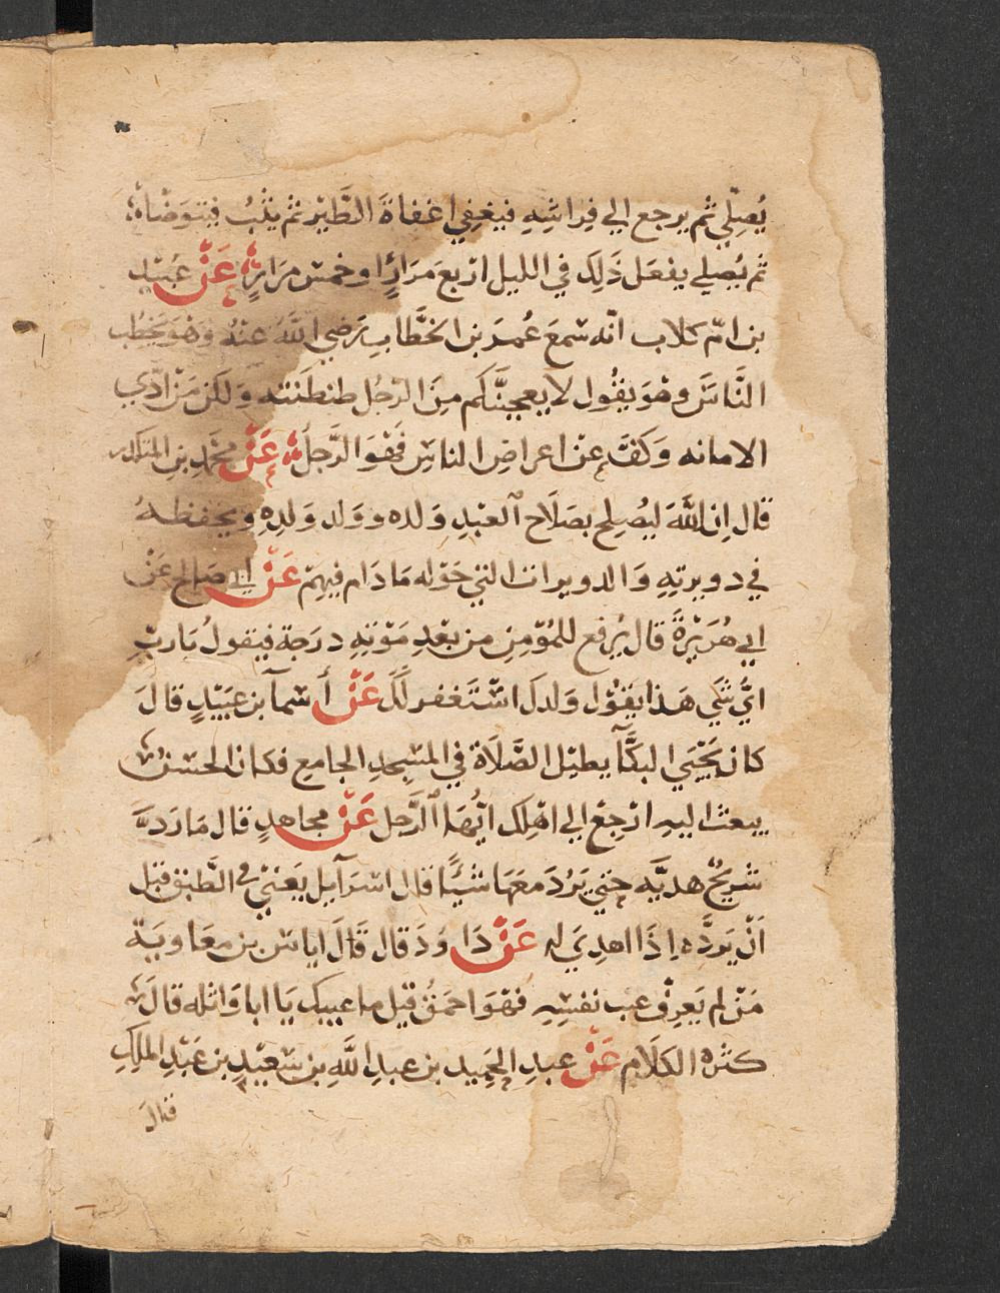 يُصِلّي ثم يرجع الي فِراشِهِ فيغفِي اغفاةَ الطَّيْر ثم يثبُ فيتوَضاه
ثم يُصلي يفعَل ذَلِك في الليل ارْبعَ مرَارًا وخمسَ مرَارٍ عَنْ عُبَيْد
بن امّ كلاب انه سَمعَ عُمرَ بن الخطَّاب رَضي اللهُ عنهُ وهْوَ يَخطُب
النَّاسَ وهْوَ يقُول لا يعجبنَّكم مِنَ الرَّجُل طنطَنَته وَلكن مَنْ ادّي
الامانه وَكفَّ عن اعراضِ الناسِ فَهْوَ الرَّجل عَنْ محَمدِ بن المنكدر
قال اِن اللَّهَ ليُصلِح بصَلَاح العَبْدِ وَلده وولد وَلدِهِ ويحفظهُ
في دويرتِهِ وَالدويرات التي حَوْله مَا دَام فيهِمْ عَنْ ابي صَالح عَنْ
ابي هُرَيْرةَ قال يُرفع للمُوْمِن من بَعْدِ مَوْته درَجة فيقولُ يَاربّ
ايُّ شَي هَذا يقوْل وَلدكَ اسْتَغفر لكَ عَنْ أسماَ بن عبَيْدٍ قالَ
كان يَحْيَي البكّآ يطيل الصَّلَاة في المسْجدِ الجامع فكان الحسَنُ
يبعَث اليهِ ارْجِعْ الي اهْلِك ايُّهَا الرَّجل عَنْ مجاهدٍ قال مَا رَدَّ
شريْحٌ هديَّه حتي يَرُدَ معَهَا شيْئًا قال اسْرَآيل يَعني في الطَّبق قبْل
اَنْ يَردَّه اِذَا اهدِيَ له عَنْ دَاوُدَ قال قَالَ اياسَ بن معَاويَة
مَنْ لم يَعرِفْ عيب نفسِهِ فهْوَ احمَقُ قيل ما عيبك يَا ابا وَاثله قالَ
كثره الكَلَام عَنْ عبدِ الحَمِيد بن عبدِ اللَّهِ بن سَعيْدٍ بن عَبْدِ الملِكِ
قالَ